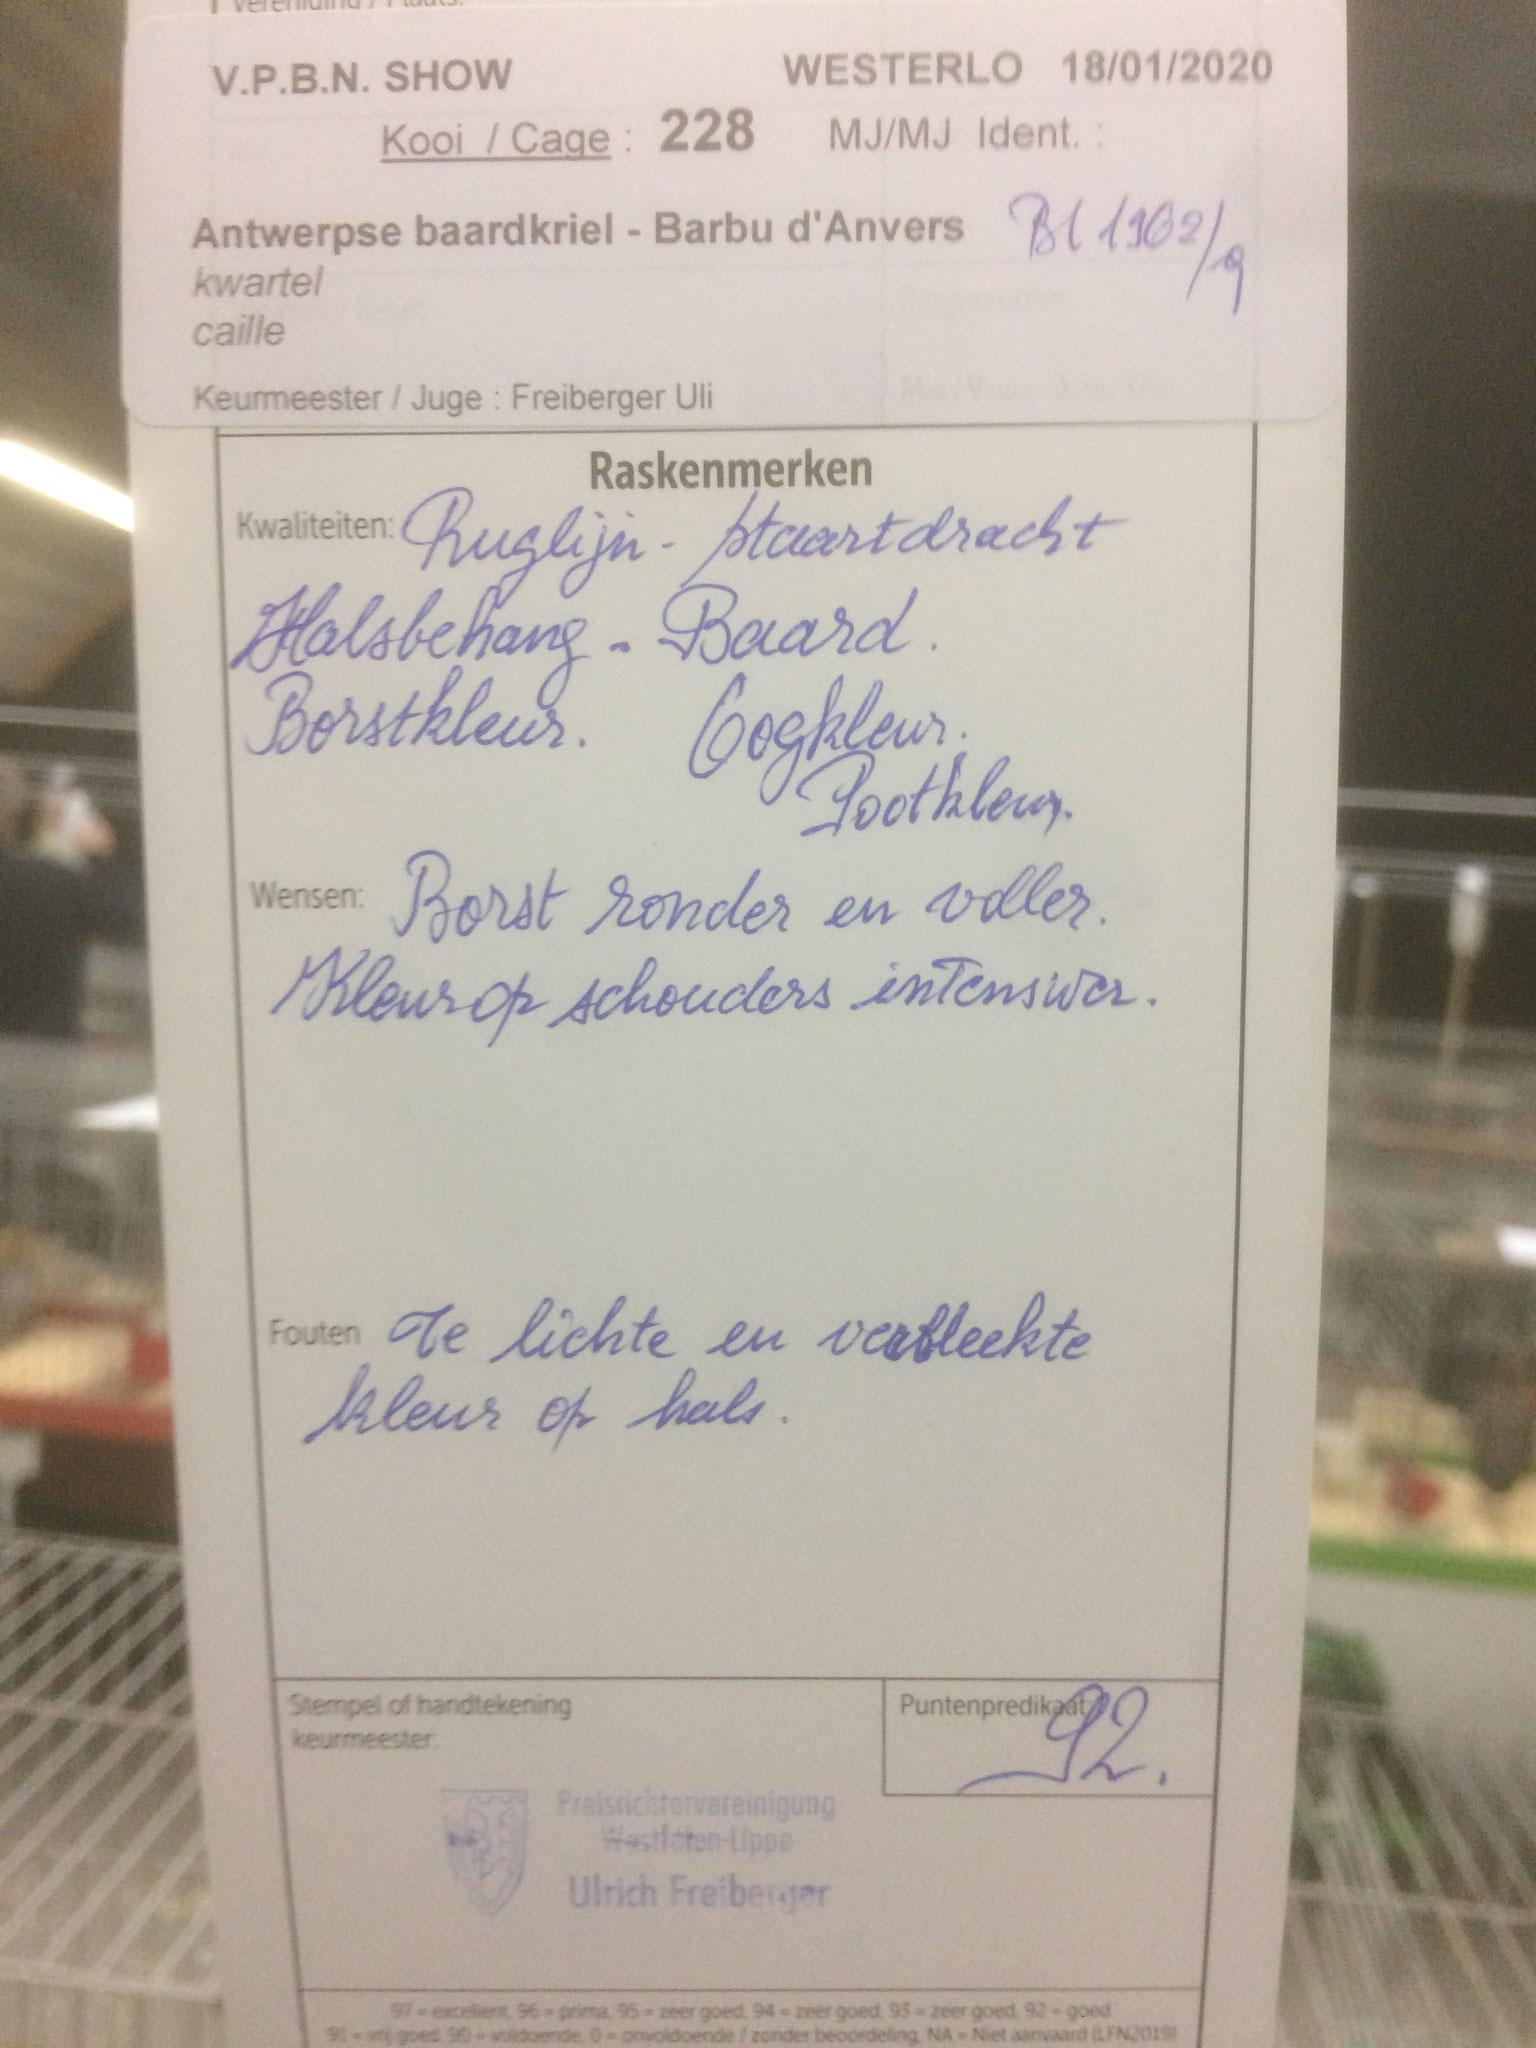 Vereniging / Plaats:
V.P.B.N. SHOW WESTERLO 18/01/2020
Kooi / Cage : 228 MJ/MJ Ident. :
Antwerpse baardkriel - Barbu d'Anvers Bl 1962/9
kwartel
caille
Keurmeester / Juge : Freiberger Uli
Raskenmerken
Kwaliteiten: Ruglijn - staartdracht
Halsbehang - Baard.
Borstkleur. Oogkleur.
Pootkleur.
Wensen: Borst ronder en voller.
Kleur op schouders intensiver.
Fouten Te lichte en verbleekte
kleur op hals.
Stempel of handtekening
keurmeester:
Puntenpredikaat:
92.
Preisrichtervereinigung
Westfalen-Lippe
Ulrich Freiberger
97 = excellent, 96 = prima, 95 = zeer goed, 94 = zeer goed, 93 = zeer goed, 92 = goed
91 = vrij goed, 90 = voldoende, 0 = onvoldoende / zonder beoordeling, NA = Niet aanvaard (LFN2019)